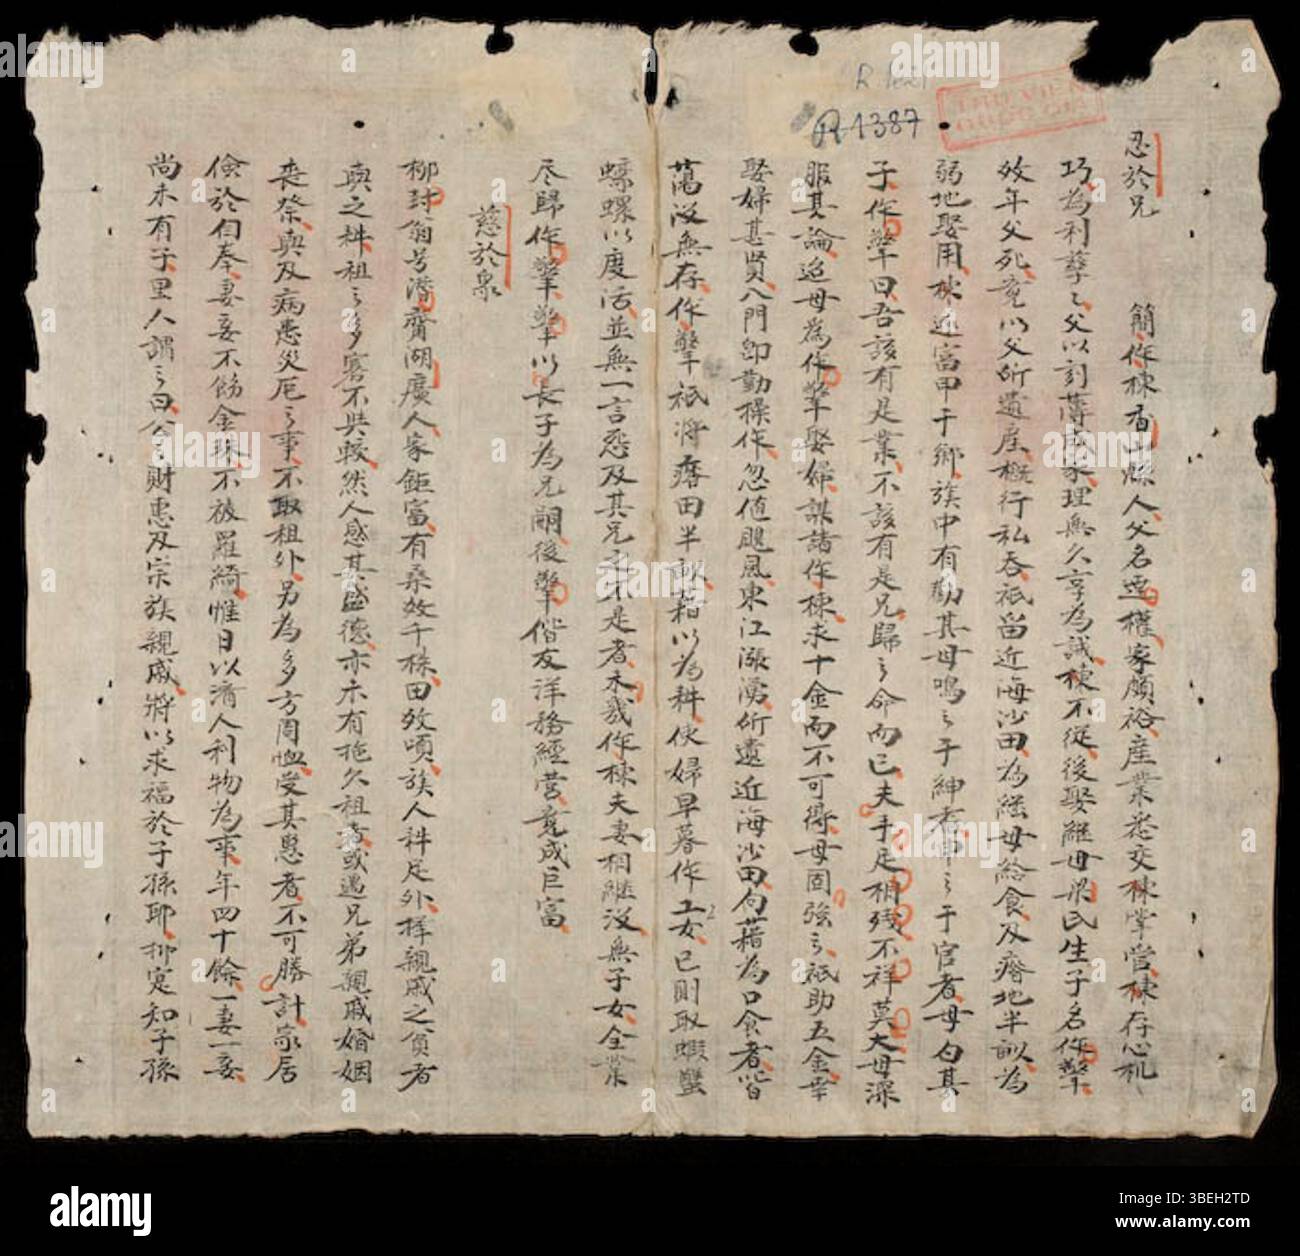 R.1387
THƯ VIỆN
QUỐC GIA
忍於兄
簡作棟香山縣人父名逛權家頗裕産業悉交棟掌管棟存心机
巧為利孳之父以刻薄成家理無久享為誡棟不従後娶継母梁氏生子名作擎
效年父死竟以父所遺産概行私吞祇留近海沙田為継母給食及瘠地半畝為
弱地娶用棟近富甲于鄉族中有勸其母鳴之于紳者申之于官者母勺其
子作擎曰吾該有是業不該有是兄歸之命而已夫手足相残不祥莫大母深
服其論迨母為作擎娶婦謀諸作棟求十金而不可得母固強之祇助五金幸
娶婦甚賢入門即勤操作忽值颶風東江漲湧所遺近海沙田向藉為口食者皆
蕩没無存作擎祇将瘠田半畝藉以為耕使婦早暮作工女已則取蝦蟹
螺以度活並無一言怨及其兄之不是者未幾作棟夫妻相継没無子女全業
尽歸作擎擎以長子為兄嗣後擎偕友洋務經营竟成巨富
慈於衆
柳封翁号潜齋湖廣人家鉅富有桑效千株田效頃族人耕足外擇親戚之貧者
與之耕租之多寡不與較然人感其盛德亦未有拖欠租者或遇兄弟親戚婚姻
丧祭與及病患災厄之事不取租外另為多方周恤受其恩者不可勝計家居
儉於自奉妻妾不飾金珠不被羅綺惟日以濟人利物為事年四十餘一妻一妾
尚未有子里人謂之曰公之財惠及宗族親戚將以求福於子孫耶抑寔知子孫